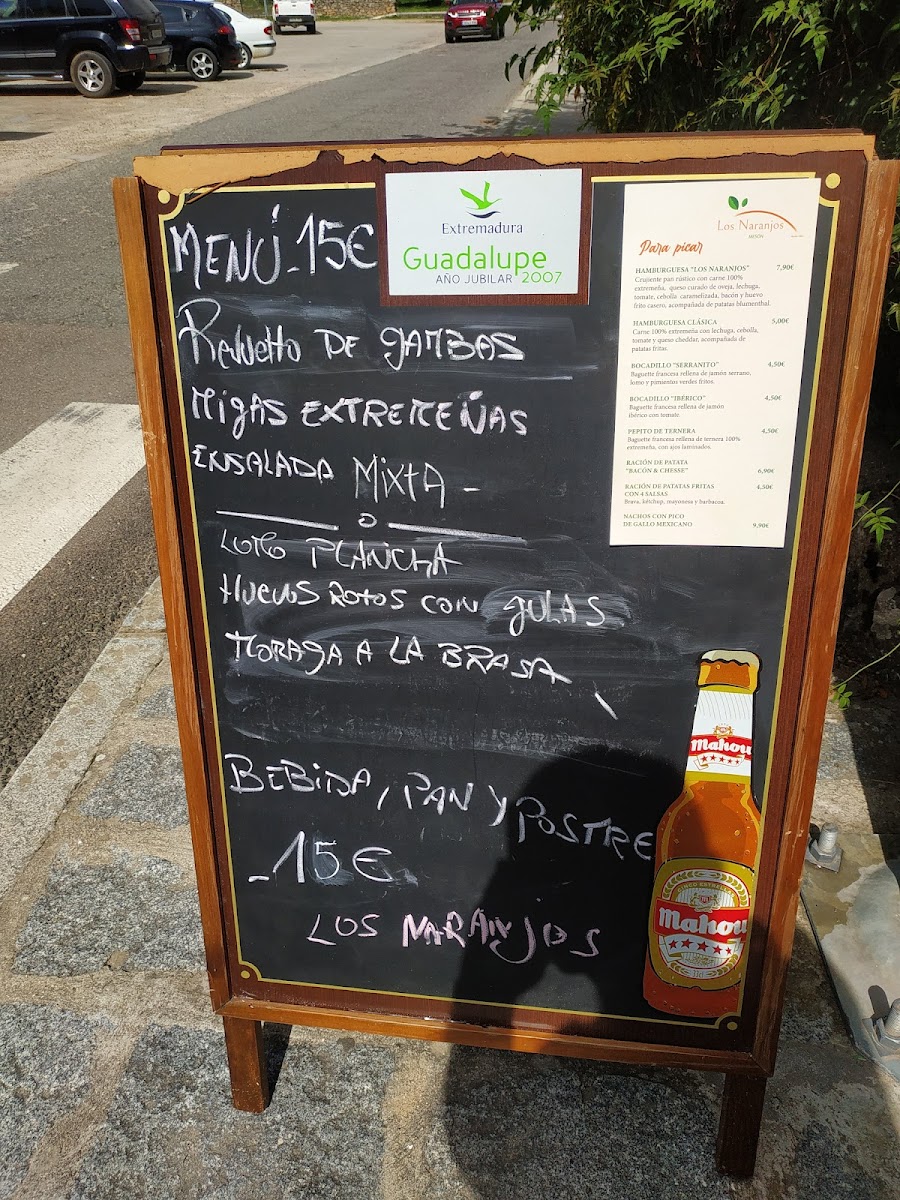 MENÚ - 15€
Extremadura
Guadalupe
AÑO JUBILAR 2007
Revuelto DE gAMBAS
MigAS EXTREMEÑAS
ENSALADA MiXTA -
o
LOMO PLANCHA
Huevos ROTOS CON gULAS
MORAgA A LA BRASA
BEBiDA, PAN Y POSTRE
- 15€
LOS NARANjOS
Los Naranjos
MESÓN
Para picar
HAMBURGUESA "LOS NARANJOS" 7,90€
Crujiente pan rústico con carne 100%
extremeña, queso curado de oveja, lechuga,
tomate, cebolla caramelizada, bacón y huevo
frito casero, acompañada de patatas blumenthal.
HAMBURGUESA CLÁSICA 5,00€
Carne 100% extremeña con lechuga, cebolla,
tomate y queso cheddar, acompañada de
patatas fritas.
BOCADILLO "SERRANITO" 4,50€
Baguette francesa rellena de jamón serrano,
lomo y pimientos verdes fritos.
BOCADILLO "IBÉRICO" 4,50€
Baguette francesa rellena de jamón
ibérico con tomate.
PEPITO DE TERNERA 4,50€
Baguette francesa rellena de ternera 100%
extremeña, con ajos laminados.
RACIÓN DE PATATA
"BACÓN & CHESSE" 6,90€
RACIÓN DE PATATAS FRITAS 4,50€
CON 4 SALSAS
Brava, kétchup, mayonesa y barbacoa.
NACHOS CON PICO
DE GALLO MEXICANO 9,90€
Mahou
CINCO ESTRELLAS
Mahou